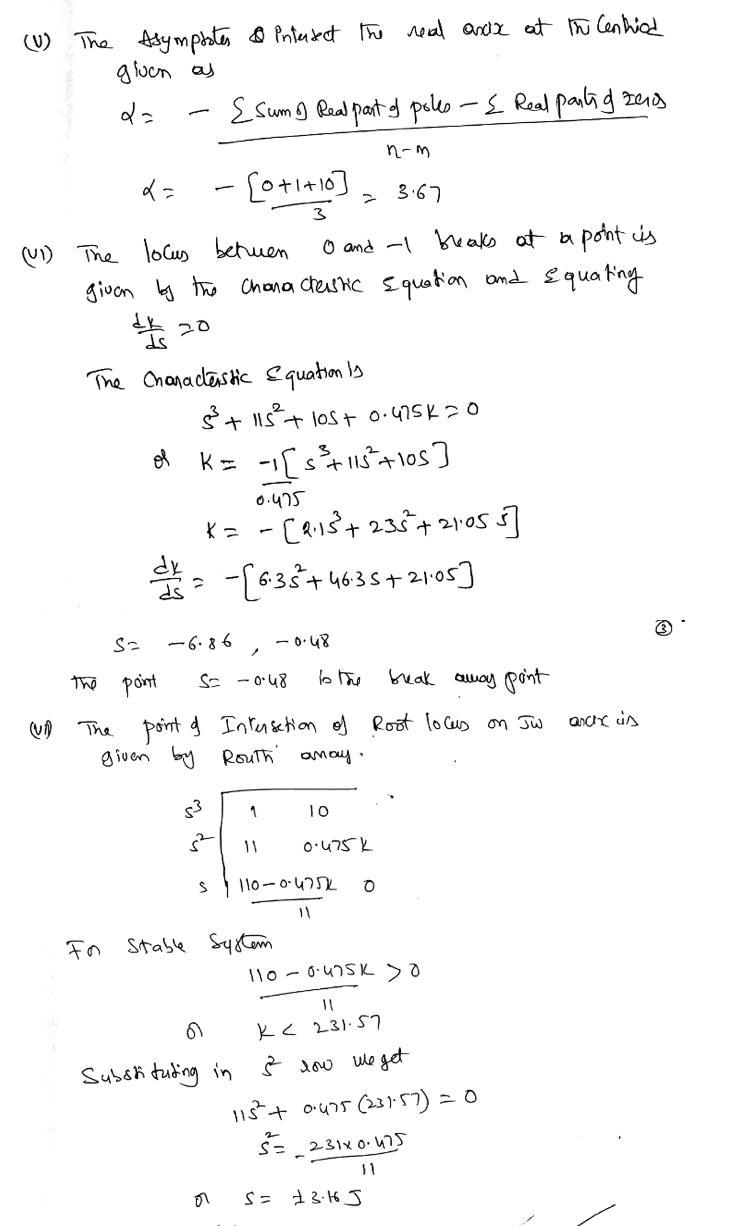 (V) The Asymptotes Intersect the real axix at the Centriod
given as
α = - Σ Sum of Real part of poles - Σ Real parts of zeros
n-m
α = - [0+1+10] = 3.67
3
(VI) The locus between 0 and -1 breaks at a point is
given by the Characteristic Equation and Equating
dk/ds = 0
The Characterstic Equation is
s³ + 11s² + 10s + 0.475K = 0
or K = -1 [s³ + 11s² + 10s]
0.475
K = - [2.1s³ + 23s² + 21.05 s]
dk/ds = - [6.3s² + 46.3s + 21.05]
S = -6.86 , -0.48
③
the point S = -0.48 is the break away point
(VII) The point of Intersection of Root locus on Jw axix is
given by Routh array.
s³ 1 10
s² 11 0.475K
s 110-0.475K 0
11
For Stable System
110 - 0.475K > 0
11
or K < 231.57
Substituting in s² row we get
11s² + 0.475 (231.57) = 0
s² = - 231 x 0.475
11
or S = ±3.16 J